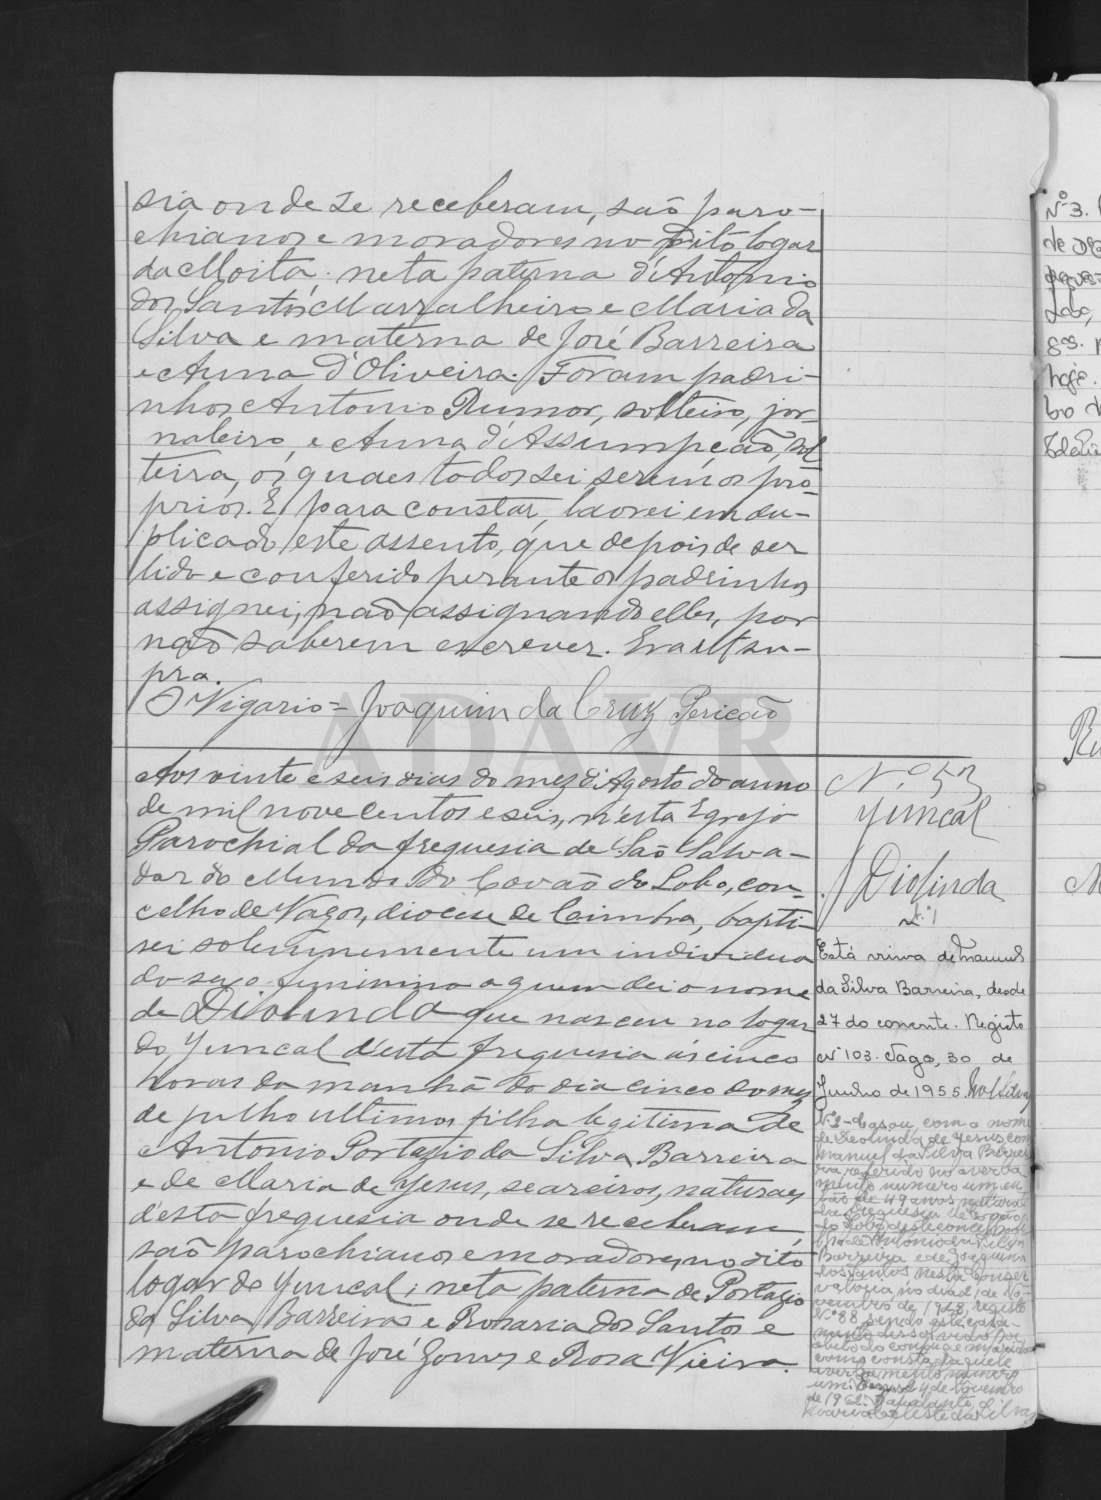 sia onde se receberam, saõ paro-
chianos e moradores no dito logar
da Moita: neta paterna d'Antonio
dos Santos Marralheiro e Maria da
Silva e materna de José Barreira
e Anna d'Oliveira. Foram padri-
nhos Antonio Rumor, solteiro, jor-
naleiro, e Anna d'Assumpção, sol-
teira, os quaes todos sei serem os pro-
prios. E para constar, lavrei em du-
plicado este assento, que depois de ser
lido e conferido perante os padrinhos
assignei, naõ assignando elles, por
naõ saberem escrever. Era ut su-
pra.
O Vigario = Joaquim da Cruz Pericão
ADAVR
Aos vinte e seis dias do mez d'Agosto do anno
de mil novecentos e seis, n'esta Egreja
Parochial da freguesia de Saõ Salva-
dor do Mundo do Covaõ do Lobo, con-
celho de Vagos, diocese de Coimbra, bapti-
sei solemnemente um individuo
do sexo feminino a quem dei o nome
de Diolinda que nasceu no logar
do Juncal d'esta freguesia ás cinco
horas da manhã do dia cinco do mez
de julho ultimo, filha legitima de
Antonio Portazio da Silva Barreira
e de Maria de Jesus, seareiros, naturaes
d'esta freguesia onde se receberam,
saõ parochianos e moradores no dito
logar do Juncal; neta paterna de Portazio
da Silva Barreiras e Rosaria dos Santos e
materna de José Gomes e Rosa Vieira.
N.º 53
Juncal
Diolinda
n.º 1
Está viuva de Manuel
da Silva Barreira, desde
27 do corrente. Registo
nº 103. Vagos, 30 de
Junho de 1955.
Nº 2 - Casou, com o nome
de Deolinda de Jesus com
Manuel da Silva Barrei-
ra, referido no averba-
mento numero um, en-
tão de 49 anos, natural
da freguesia de Covão
do Lobo, deste concelho, fi-
lho de Antonio da Silva
Barreira e de Joaquina
dos Santos, nesta Conser-
vatoria, no dia 21 de No-
vembro de 1948, registo
Nº 88, sendo este casa-
mento dissolvido por
obito do conjuge marido
como consta daquele
averbamento numero
um. Vagos, 4 de Novembro
de 1962. O ajudante,